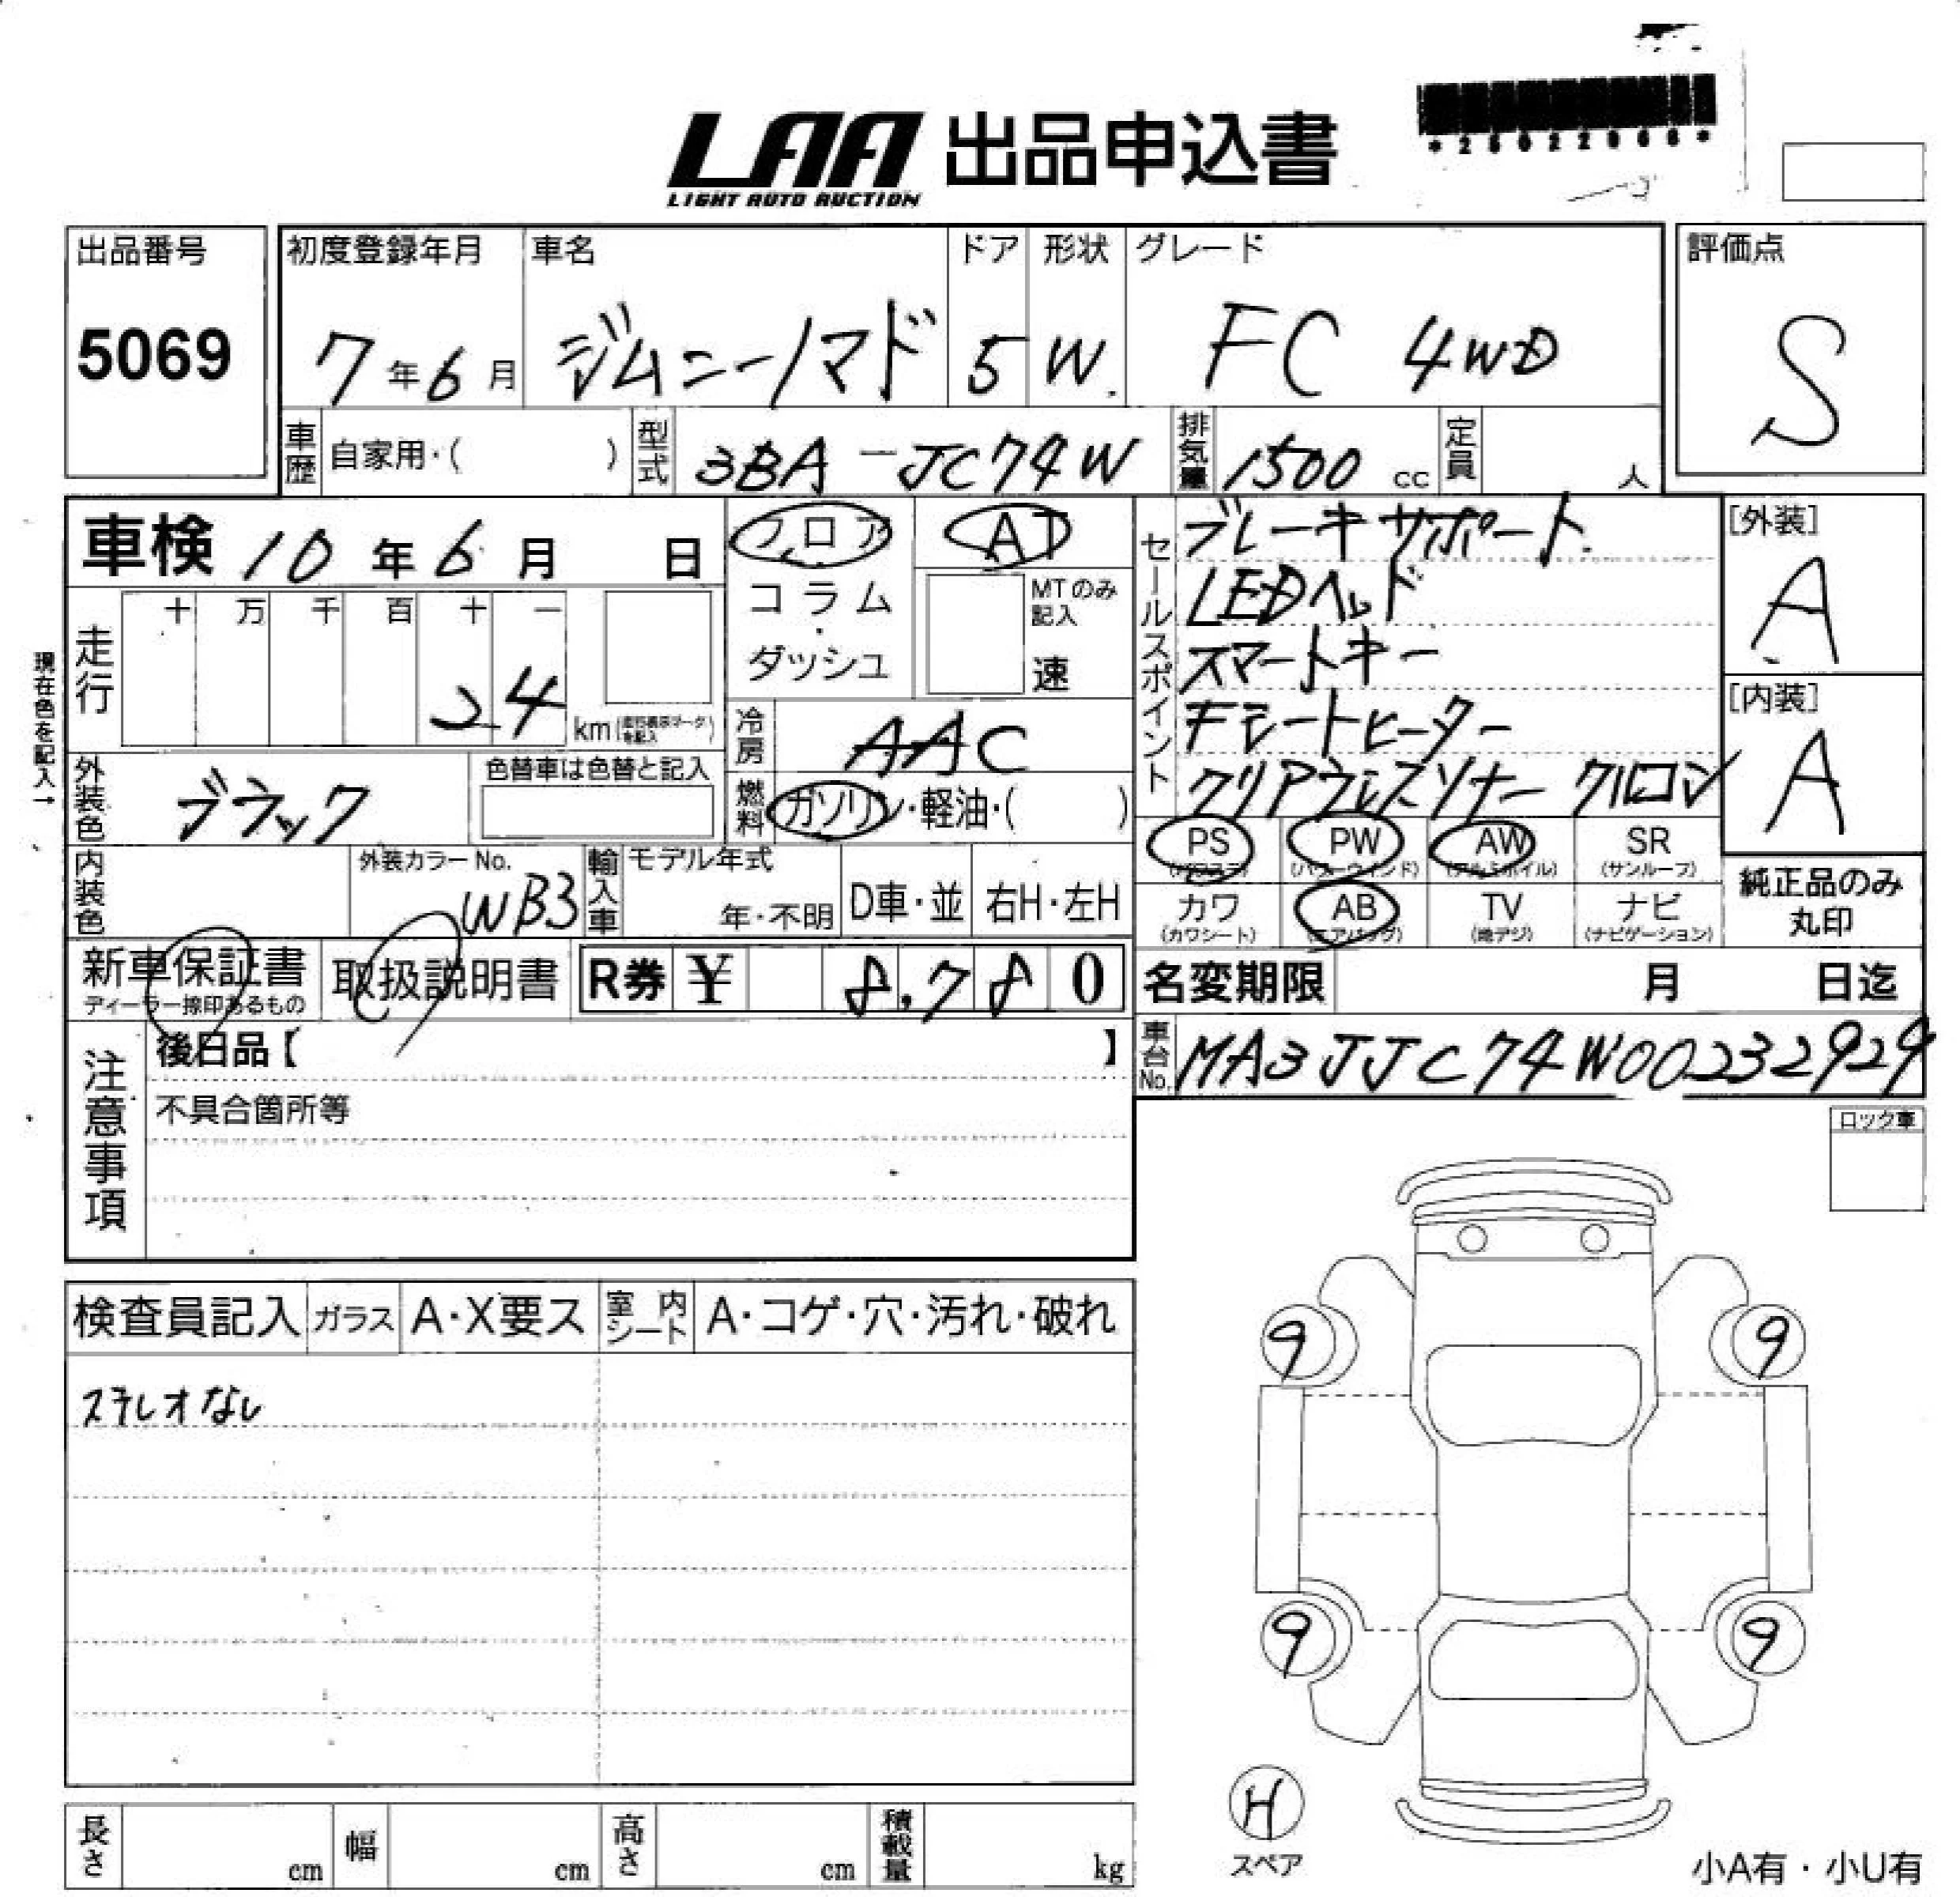 *25022968*
LAA 出品申込書
LIGHT AUTO AUCTION
出品番号 初度登録年月 車名 ドア 形状 グレード 評価点
5069 7年6月 ジムニーノマド 5 W. FC 4WD S
車歴 自家用・( ) 型式 3BA-JC74W 排気量 1500 cc 定員 人
車検 10年6月 日 フロア AT
コラム・ダッシュ MTのみ記入 速
セールスポイント ブレーキサポート
LEDヘッド
スマートキー
シートヒーター
クリアランスソナー クルコン
[外装] A
[内装] A
現在色を記入→
走行 十 万 千 百 十 一
24 km
冷房 AAC
外装色 ブラック 色替車は色替と記入
燃料 ガソリン・軽油・( )
PS (パワステ) PW (パワーウインド) AW (アルミホイル) SR (サンルーフ)
内装色 外装カラーNo. WB3 輸入車 モデル年式 年・不明 D車・並 右H・左H
カワ (カワシート) AB (エアバッグ) TV (地デジ) ナビ (ナビゲーション)
純正品のみ丸印
新車保証書 ディーラー捺印あるもの 取扱説明書 R券 ¥ 8,780
名変期限 月 日迄
車台No. MA3JJC74W00232929
注意事項 後日品【 】
不具合箇所等
ロック車
検査員記入 ガラス A・X要ス 室内シート A・コゲ・穴・汚れ・破れ
ステレオなし
9 9
9 9
H
スペア
長さ cm 幅 cm 高さ cm 積載量 kg
小A有・小U有